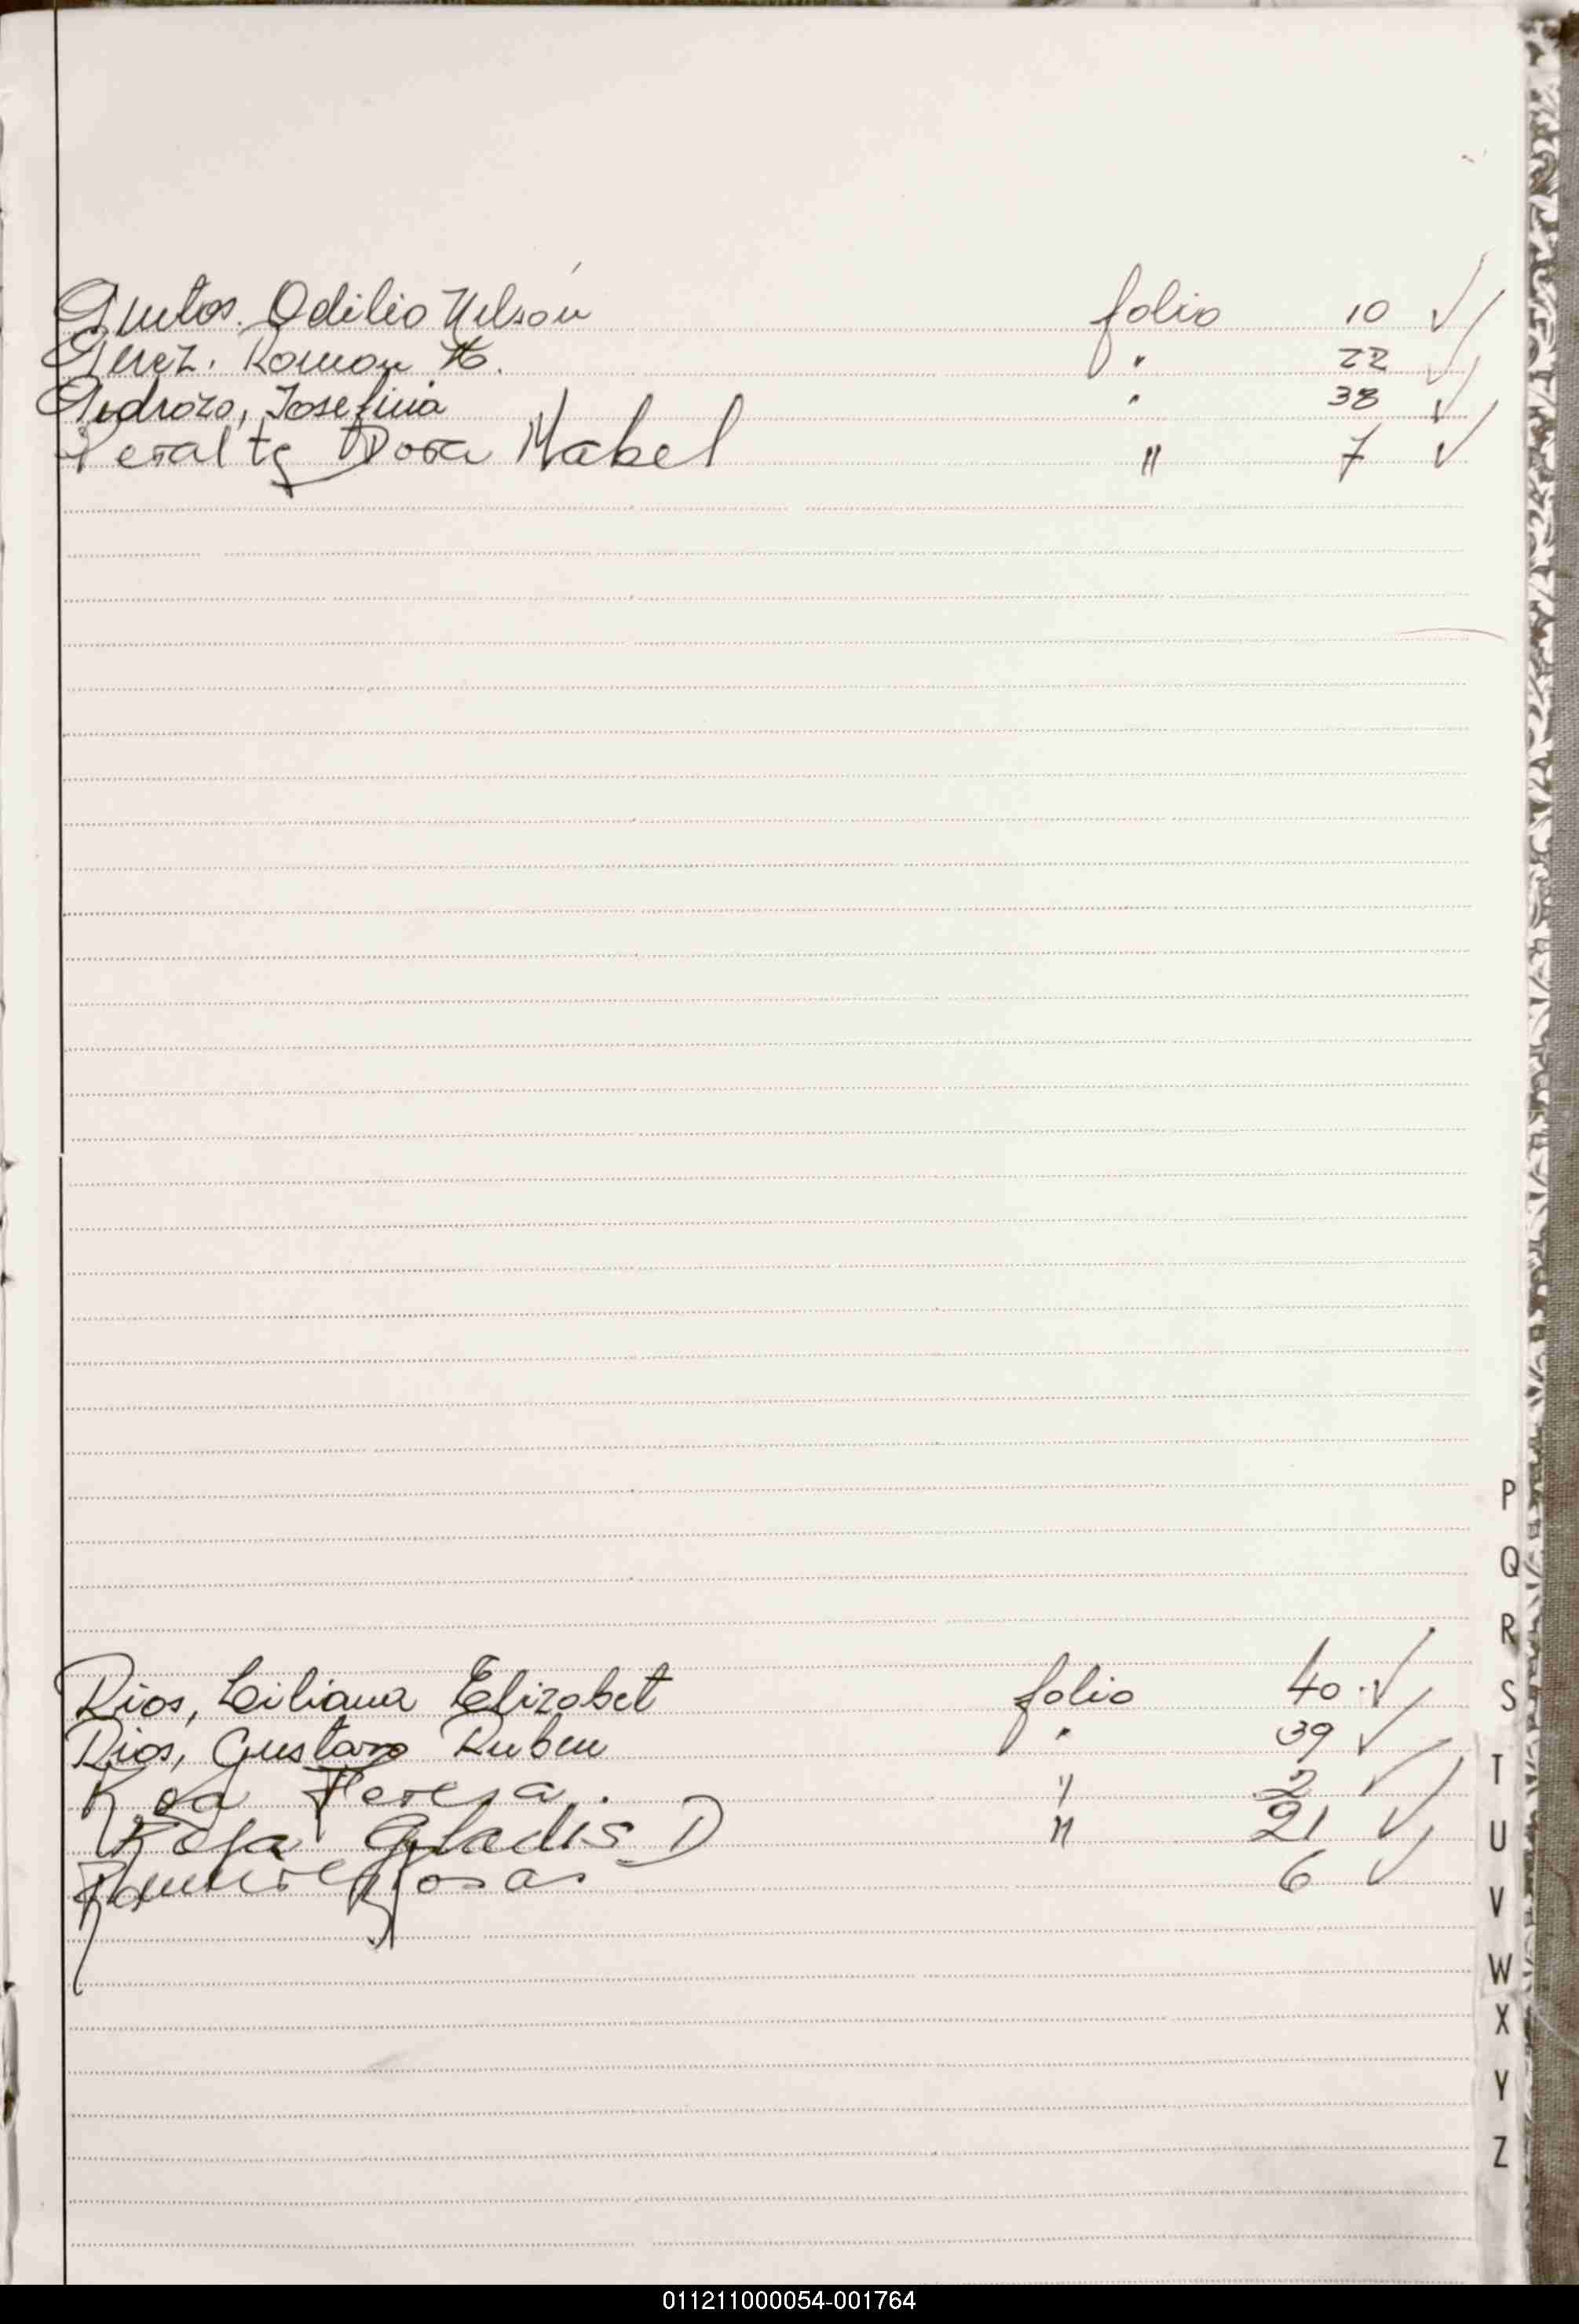 Pintos. Odilio Nelsón folio 10 ✓
Perez. Roman " 22 ✓
Pedrozo, Josefina " 38 ✓
Peralta Dora Mabel " 7 ✓
Rios, Liliana Elizabet folio 40 ✓
Rios, Gustavo Ruben " 39 ✓
Roa Teresa. " 2 ✓
Roja Gladis D " 21 ✓
Ramirez Rosa 6 ✓
P
Q
R
S
T
U
V
W
X
Y
Z
011211000054-001764